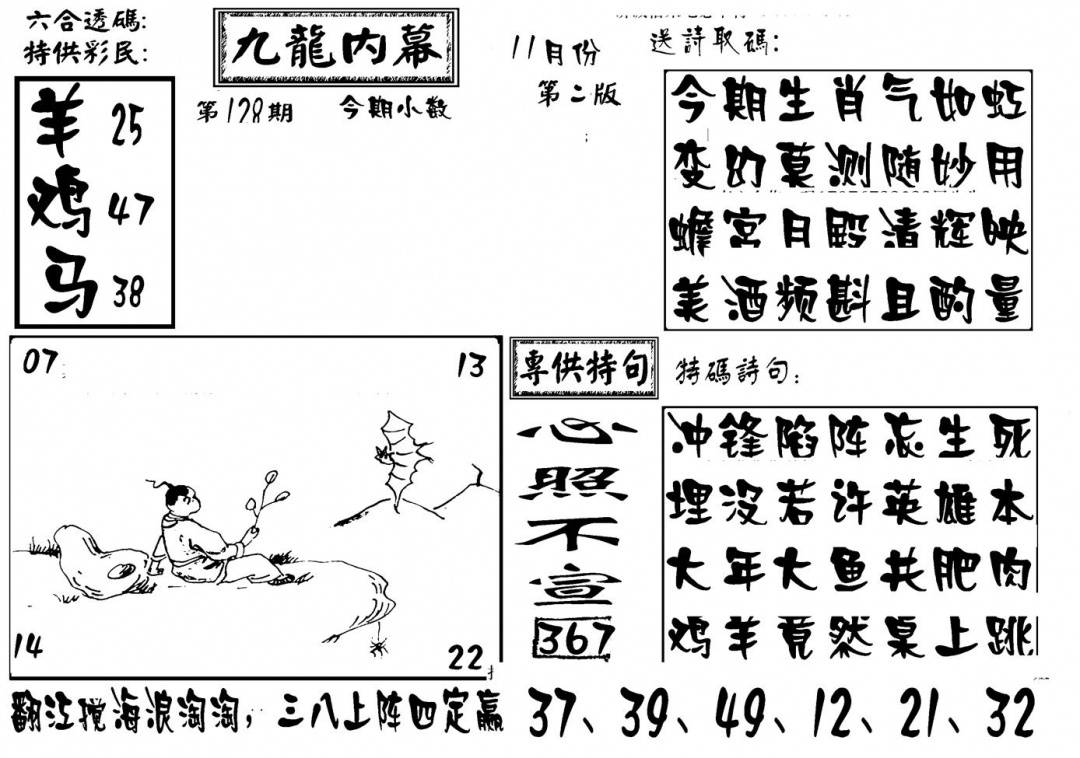 六合透碼:
特供彩民:
羊 25
鸡 47
马 38
九龍内幕
第178期 今期小数
11月份
第二版
送詩取碼:
今期生肖气如虹
变幻莫测随妙用
蟾宫月殿清辉映
美酒频斟且酌量
07 13
14 22
專供特句
心照不宣
367
特碼詩句:
冲锋陷阵忘生死
埋没若许英雄本
大年大鱼共肥肉
鸡羊竟然桌上跳
翻江搅海浪淘淘，三八上阵四定赢
37、39、49、12、21、32